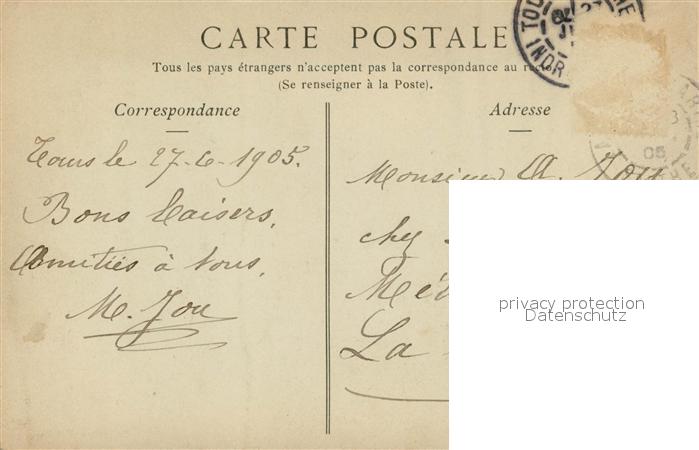 CARTE POSTALE
Tous les pays étrangers n'acceptent pas la correspondance au recto
(Se renseigner à la Poste).
Correspondance
Adresse
Tours le 27-6-1905.
Bons baisers,
Amitiés à tous,
M. Jou
Monsieur A. Jou
chez
La
privacy protection
Datenschutz
TOU
INDR
05